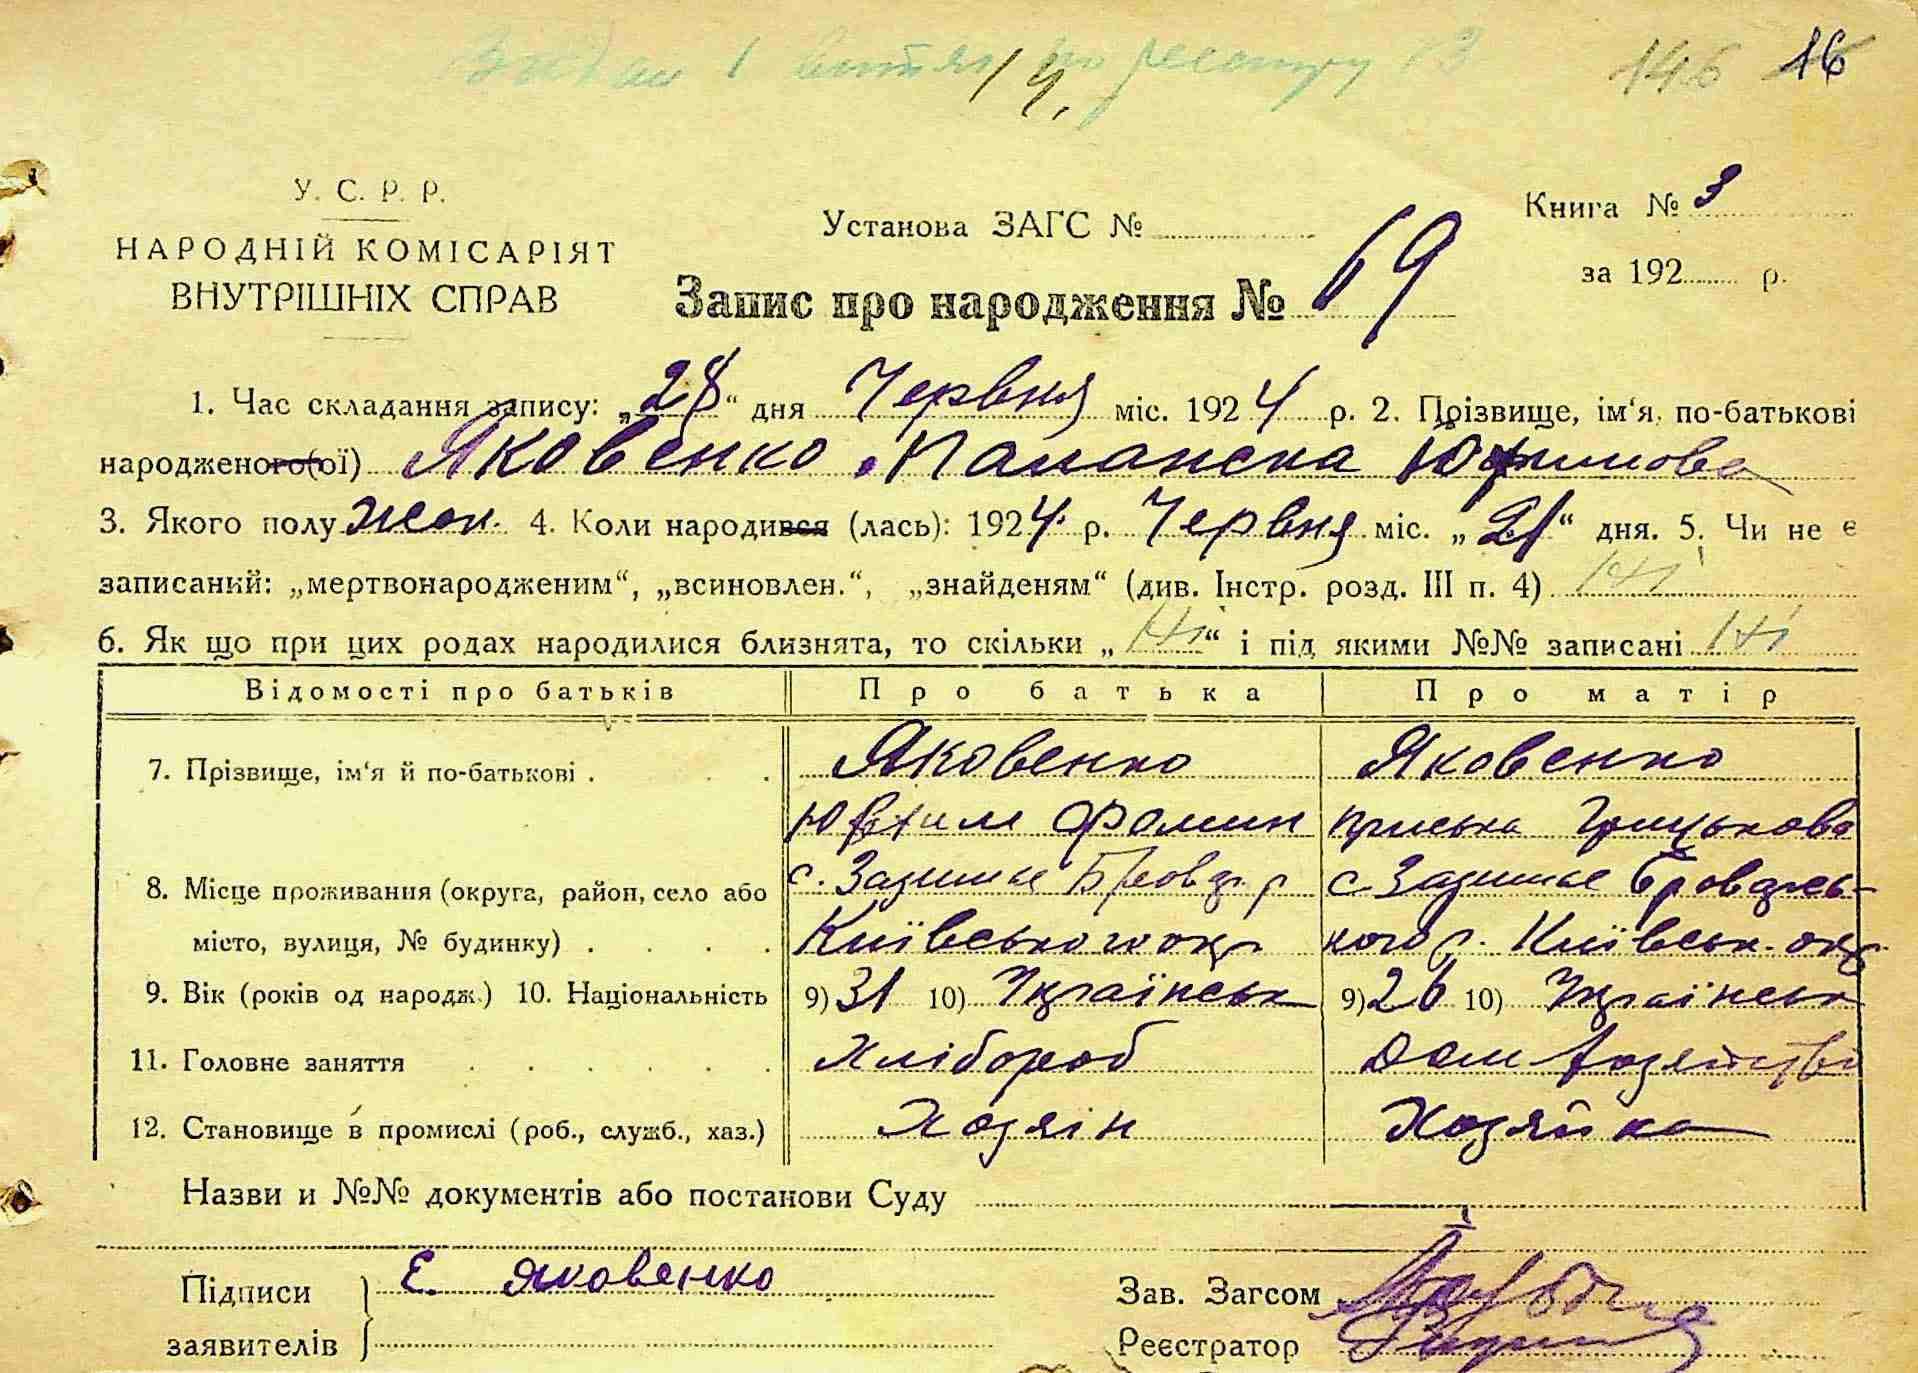 Видан 1 витяг по реєстру 13
14.
146 16
У. С. Р. Р.
НАРОДНІЙ КОМІСАРІЯТ
ВНУТРІШНІХ СПРАВ
Установа ЗАГС №
Запис про народження № 69
Книга № 3
за 192 р.
1. Час складання запису: „28“ дня Червня міс. 1924 р. 2. Прізвище, ім‘я, по-батькові
народженого(ої) Яковенко Паланска Юхимова
3. Якого полу жон. 4. Коли народився (лась): 1924 р. Червня міс. „21“ дня. 5. Чи не є
записаний: „мертвонародженим“, „всиновлен.“, „знайденям“ (див. Інстр. розд. III п. 4) Ні
6. Як що при цих родах народилися близнята, то скільки „Ні“ і під якими №№ записані Ні
Відомості про батьків Про батька Про матір
7. Прізвище, ім‘я й по-батькові . . . Яковенко Яковенко
Юхтим Фомин Приська Грицькова
8. Місце проживання (округа, район, село або с. Зазимье Бровар. р с. Зазимье Броварсь-
місто, вулиця, № будинку) . . . . Київського окр кого р. Київськ. окр.
9. Вік (років од народж.) 10. Національність 9) 31 10) Українськ 9) 26 10) Українськ
11. Головне заняття . . . . . Хлібороб Дом хозяйство
12. Становище в промислі (роб., служб., хаз.) Хозяін Хозяйка
Назви и №№ документів або постанови Суду
Підписи Є. Яковенко
заявителів
Зав. Загсом
Реєстратор